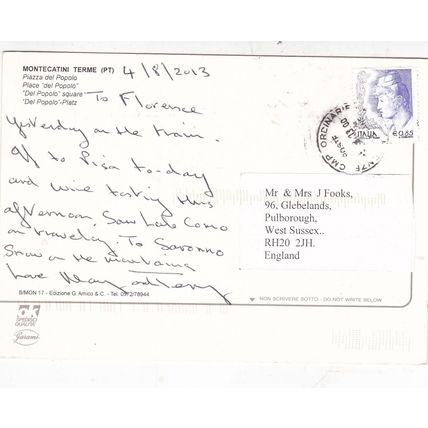 MONTECATINI TERME (PT) 4/8/2013
Piazza del Popolo
Place "del Popolo"
"Del Popolo" square
"Del Popolo"-Platz
To Florence
yesterday on the train.
Off to Pisa to-day
and wine tasting this
afternoon. Saw Lake Como
on traveling To Saronno
Snow on the mountains
Love Mary and
B/MON 17 - Edizione G. Amico & C. - Tel. 0572/78944
SPEDISCI
QUALITA'
Garami
CMP ORDINARIE
ITALIA €0,85
Mr & Mrs J Fooks,
96, Glebelands,
Pulborough,
West Sussex..
RH20 2JH.
England
NON SCRIVERE SOTTO - DO NOT WRITE BELOW